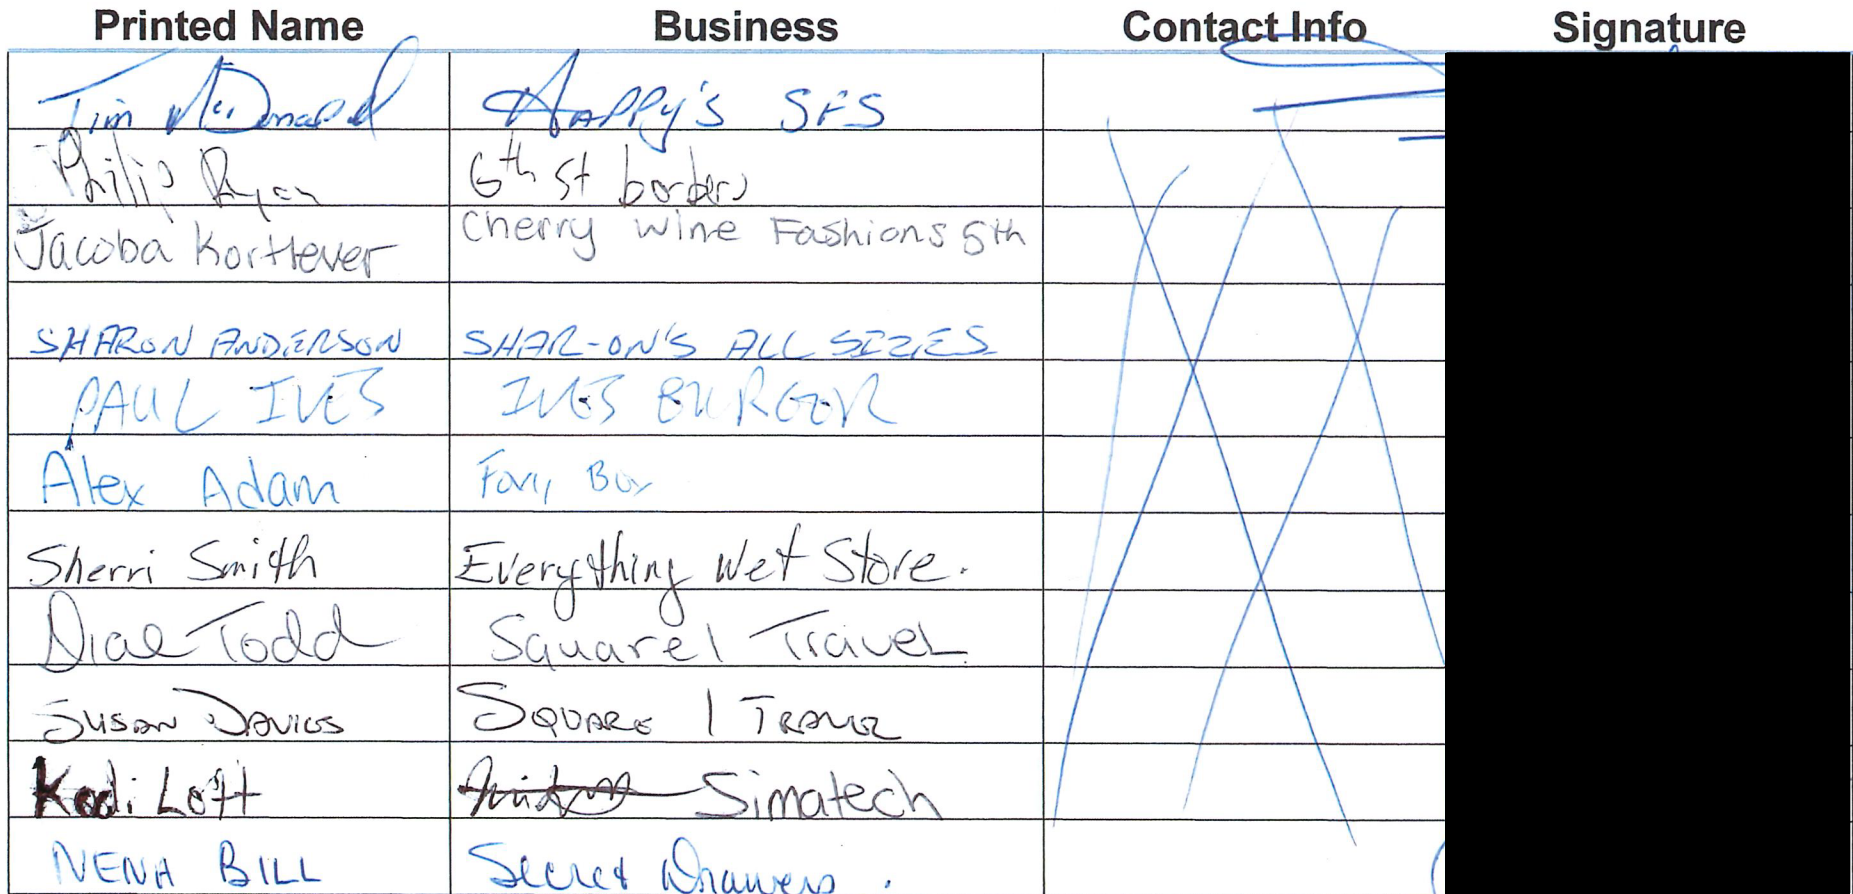 Printed Name Business Contact Info Signature
Tim McDonald HAPPY'S SFS
Philip Ryan 6th St borders
Jacoba Kortlever Cherry Wine Fashions 5th
SHARON ANDERSON SHAR-ON'S ALL SIZES
PAUL IVES IVES BURGER
Alex Adam
Sherri Smith Everything Wet Store.
Todd Square 1 Travel
SUSAN DAVIES SQUARE 1 TRAVEL
Kodi Loft Simatech
NENA BILL Secret Drawers.